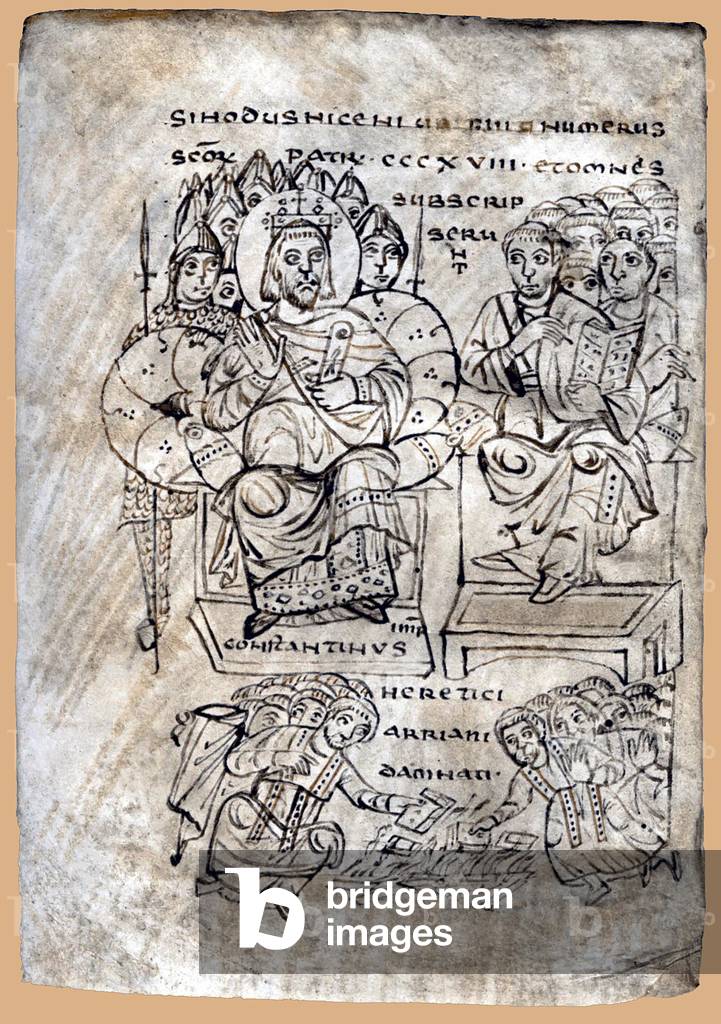 SINODUS NICENI UBI NUMERUS
SCŌR PATR · CCCXVIII · ET OMNES
SUBSCRIP
SERU
N
T
IMP̄
CONSTANTINVS
HERETICI
ARRIANI
DAMNATI ·
b bridgeman
images